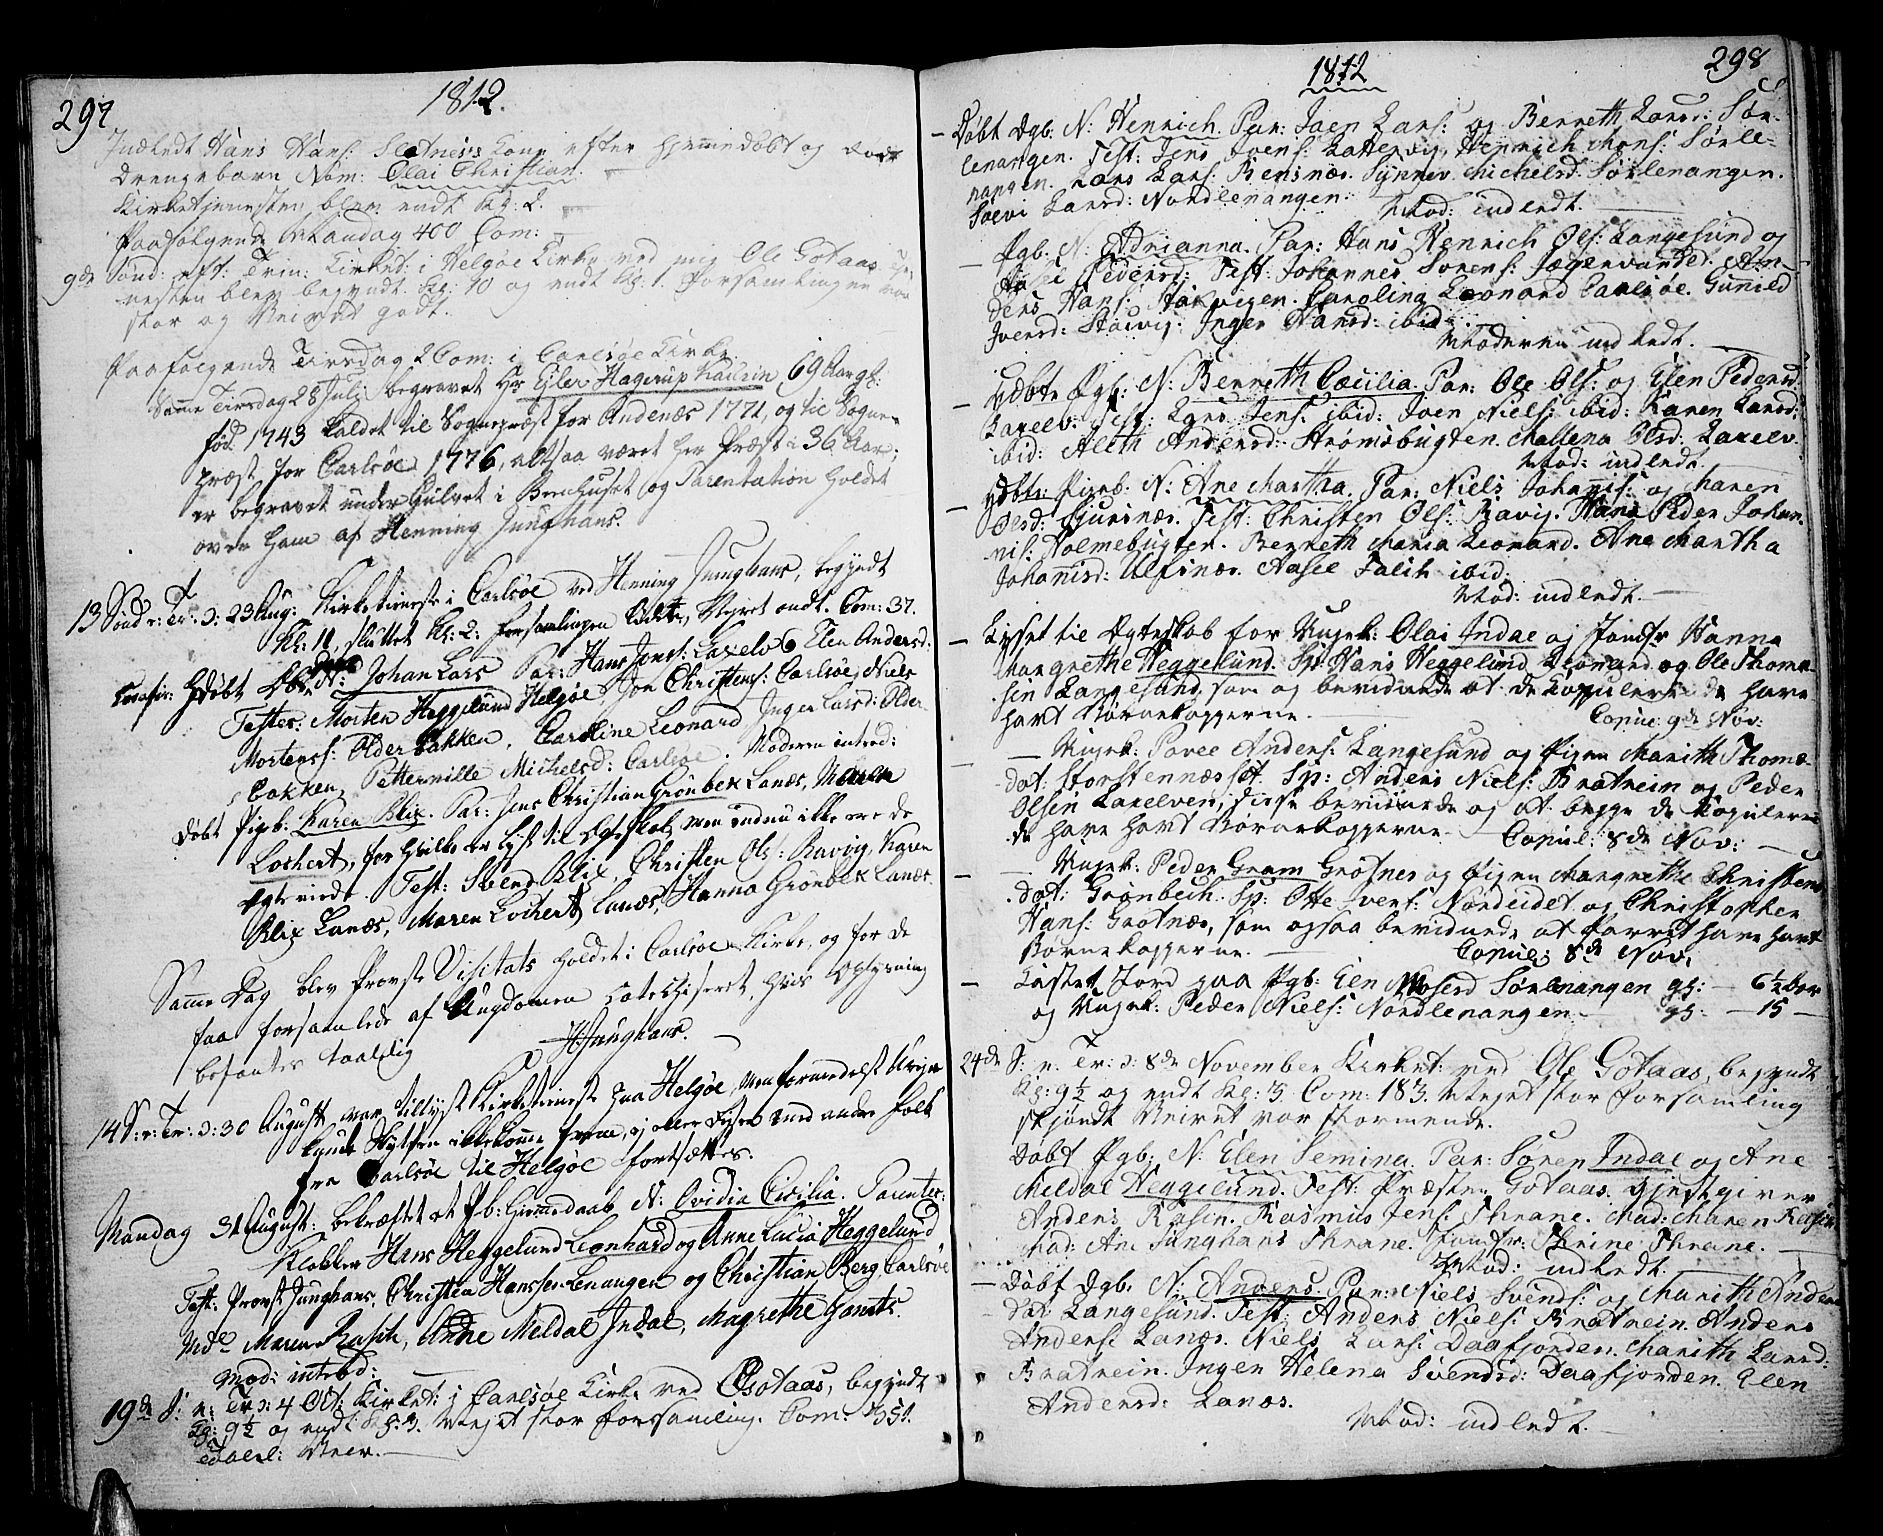 297
1812.
Indledt Hans Hans: Sletnæss Kone efter hjemmedøbt og
Drengebarn Nom: Olai Christian.
Kirketjenesten blev endt Kl: 2.
Paafølgende Mandag 400 Com:
9de Sønd: eft: Trin: Kirket: i Helgøe Kirke ved mig Ole Gotaas
nesten blev begyndt Kl: 10 og endt Kl: 1. Forsamlingen var
stor og Veiret godt.
Paafølgende Tirsdag 2 Com: i Carlsøe Kirke.
Samme Tirsdag 28 Julii begravet Hr Eiler Hagerup 69 Aar gl:
fød 1743 kaldet til Sognepræst for Andenæs 1771, og til Sogne-
præst for Carlsøe 1776, altsaa været her Præst i 36 Aar;
er begravet under Gulvet i Beenhuset og Parentation holdet
over ham af Henning Junghans.
13 Sønd: e: Tr: ɔ: 23 Aug: Kirketieneste i Carlsøe ved Henning Junghans, begyndt
Kl: 11, sluttet Kl: 2, forsamlingen liden, Veiret ondt. Com: 37.
døbt N: Johan Lars Par: Hans Jons: Laxelv & Elen Andersd:
Testes: Morten Heggelund Helgøe, Jon Christens: Carlsøe, Niels
Mortens: Olderbakken, Caroline Leonard, Inger Larsd: Older-
bakken, Petternille Michelsd: Carlsøe. Moderen introd:
Døbt Pigeb: Karen Blix. Par: Jens Christian Grönbek Lanæs, Maren
Lochert, for hvilke er lyst til Egteskab, men endnu ikke ere de
egteviede. Test: Svend Blix, Christen Ols: Ravvig, Karen
Blix Lanæs, Maren Lochert Lanæs, Hanna Grönbek Lanæs.
Samme Dag blev Provste Visitats holdet i Carlsøe Kirke, og for de
faa forsamlede af Ungdommen catechiseret, hvis Oplysning
befantes taalelig
HJunghans.
14 S: e: Tr: ɔ: 30 August var tillyst Kirketieneste paa Helgøe, Men formedelst Uveir
kunde ikke komme frem, ej eller Reisen med andre folk
fra Carlsøe til Helgøe fortsættes.
Mandag 31 August: bekræftet et Pb: hiemmedaab N: Ovidia Cicilia. Parentes:
Klokker Hans Heggelund Leonhard og Anne Lucia Heggelund
Test: Provst Junghans, Christen Hanssen Lenangen og Christian Berg Carlsøe
Md: Maren Rasch, Anne Meldal Indal, Magrethe Hansd:
Mod: introd:
19de S: e: Tr: ɔ: 4 Oct: Kirket: i Carlsøe Kirke ved OGotaas, begyndt
Kl: 9½ og endt Kl: 3. Meget stor forsamling. Com: 351.
daarl: Veir.
298
1812
- Døbt Dgb: N: Henrich. Par: Joen Lars: og Berreth Larsd: Sör-
lenangen. Test: Jens Ivens: Kattevig, Henrich Mons: Sörle-
nangen. Lars Lars: Rensnæs. Synnev Michelsd: Sörlenangen.
Sølvi Larsd: Nordlenangen. Mod: indledt.
- Pgb: N: Adrianna. Par: Hans Henrich Ols: Langesund og
Pedersd: Test: Johannes Sörens: Jægervandet. An-
ders Hans: Stakvigen. Carolina Leonard Carlsøe. Gunild
Iversd: Stakvig. Inger Hansd: ibid: Moderen indledt.
- Døbte Pgb: N: Berreth Cæcilia. Par: Ole Ols: og Elen Pedersd:
Laxelv. Test: Lars Jens: ibid: Joen Niels: ibid: Karen Larsd:
ibid: Aleth Andersd: Strømsbugten. Mallena Olsd: Laxelv.
Mod: indledt.
- Døbte Pigeb: N: Ane Martha. Par: Niels Johanis: og Maren
Olsd: Sjursnæs. Test: Christen Ols: Ravig. Hans Peder Johan-
nis: Holmebugten. Berreth Maria Leonard. Ane Martha
Johanisd: Ulfsnæs. Aasel Falch ibid:
Mod: indledt.
- Lyset til Egteskab for Ungk: Olai Indal og Jomfr Hanna
Margrethe Heggelund. Sp: Hans Heggelund Leonard og Ole Thoma-
sen Langesund, som og bevidnede at de Copulerende have
havt Børnekopperne. Copul: 9de Nov:
- Ungk: Povel Anders: Langesund og Pigen Marith Thoma-
dat: Storstennæsset. Sp: Anders Niels: Bratrein og Peder
Olsen Laxelven, disse bevidnede og at begge de Kopulerende
have havt Børnekopperne. Copul: 8de Nov:
- Ungk: Peder Gram Grötnes og Pigen Margrethe Christens
dat: Grønbech. Sp: Otte Ivers: Nordeidet og Christopher
Hans: Grötnæs, som ogsaa bevidnede at Parret have havt
Børnekopperne. Copul: 8de Nov.
- Kastet Jord paa Pgb: Elen Mosesd Sörlenangen gl: - 6½
og Ungk: Peder Niels: Nordlenangen gl: - 15 -
24de S: e: Tr: ɔ: 8de November Kirket: ved Ole Gotaas, begyndt
Kl: 9½ og endt Kl: 3. Com: 183. Meget stor Forsamling
skjøndt Veiret var stormende.
Døbt Pgb: N: Elen Semina. Par: Sören Indal og Ane
Meldal Heggelund. Test: Præsten Gotaas. Gjestgiver
Anders Rasch. Rasmus Jens: Thrane. Mad: Maren Rasch
Mad: Ane Junghans Thrane. Jomfr: Thrine Thrane.
Mod: indledt.
- Døbt Dgb: N: Anders. Par: Niels Svends: og Marith Anders
dat: Langesund. Test: Anders Niels: Bratrein. Anders
Anders: Lanæs. Niels Lars: Daafjorden. Marith Larsd:
Bratrein. Inger Helena Svendsd: Daafjorden. Elen
Andersd: Lanæs.
Mod: indledt.